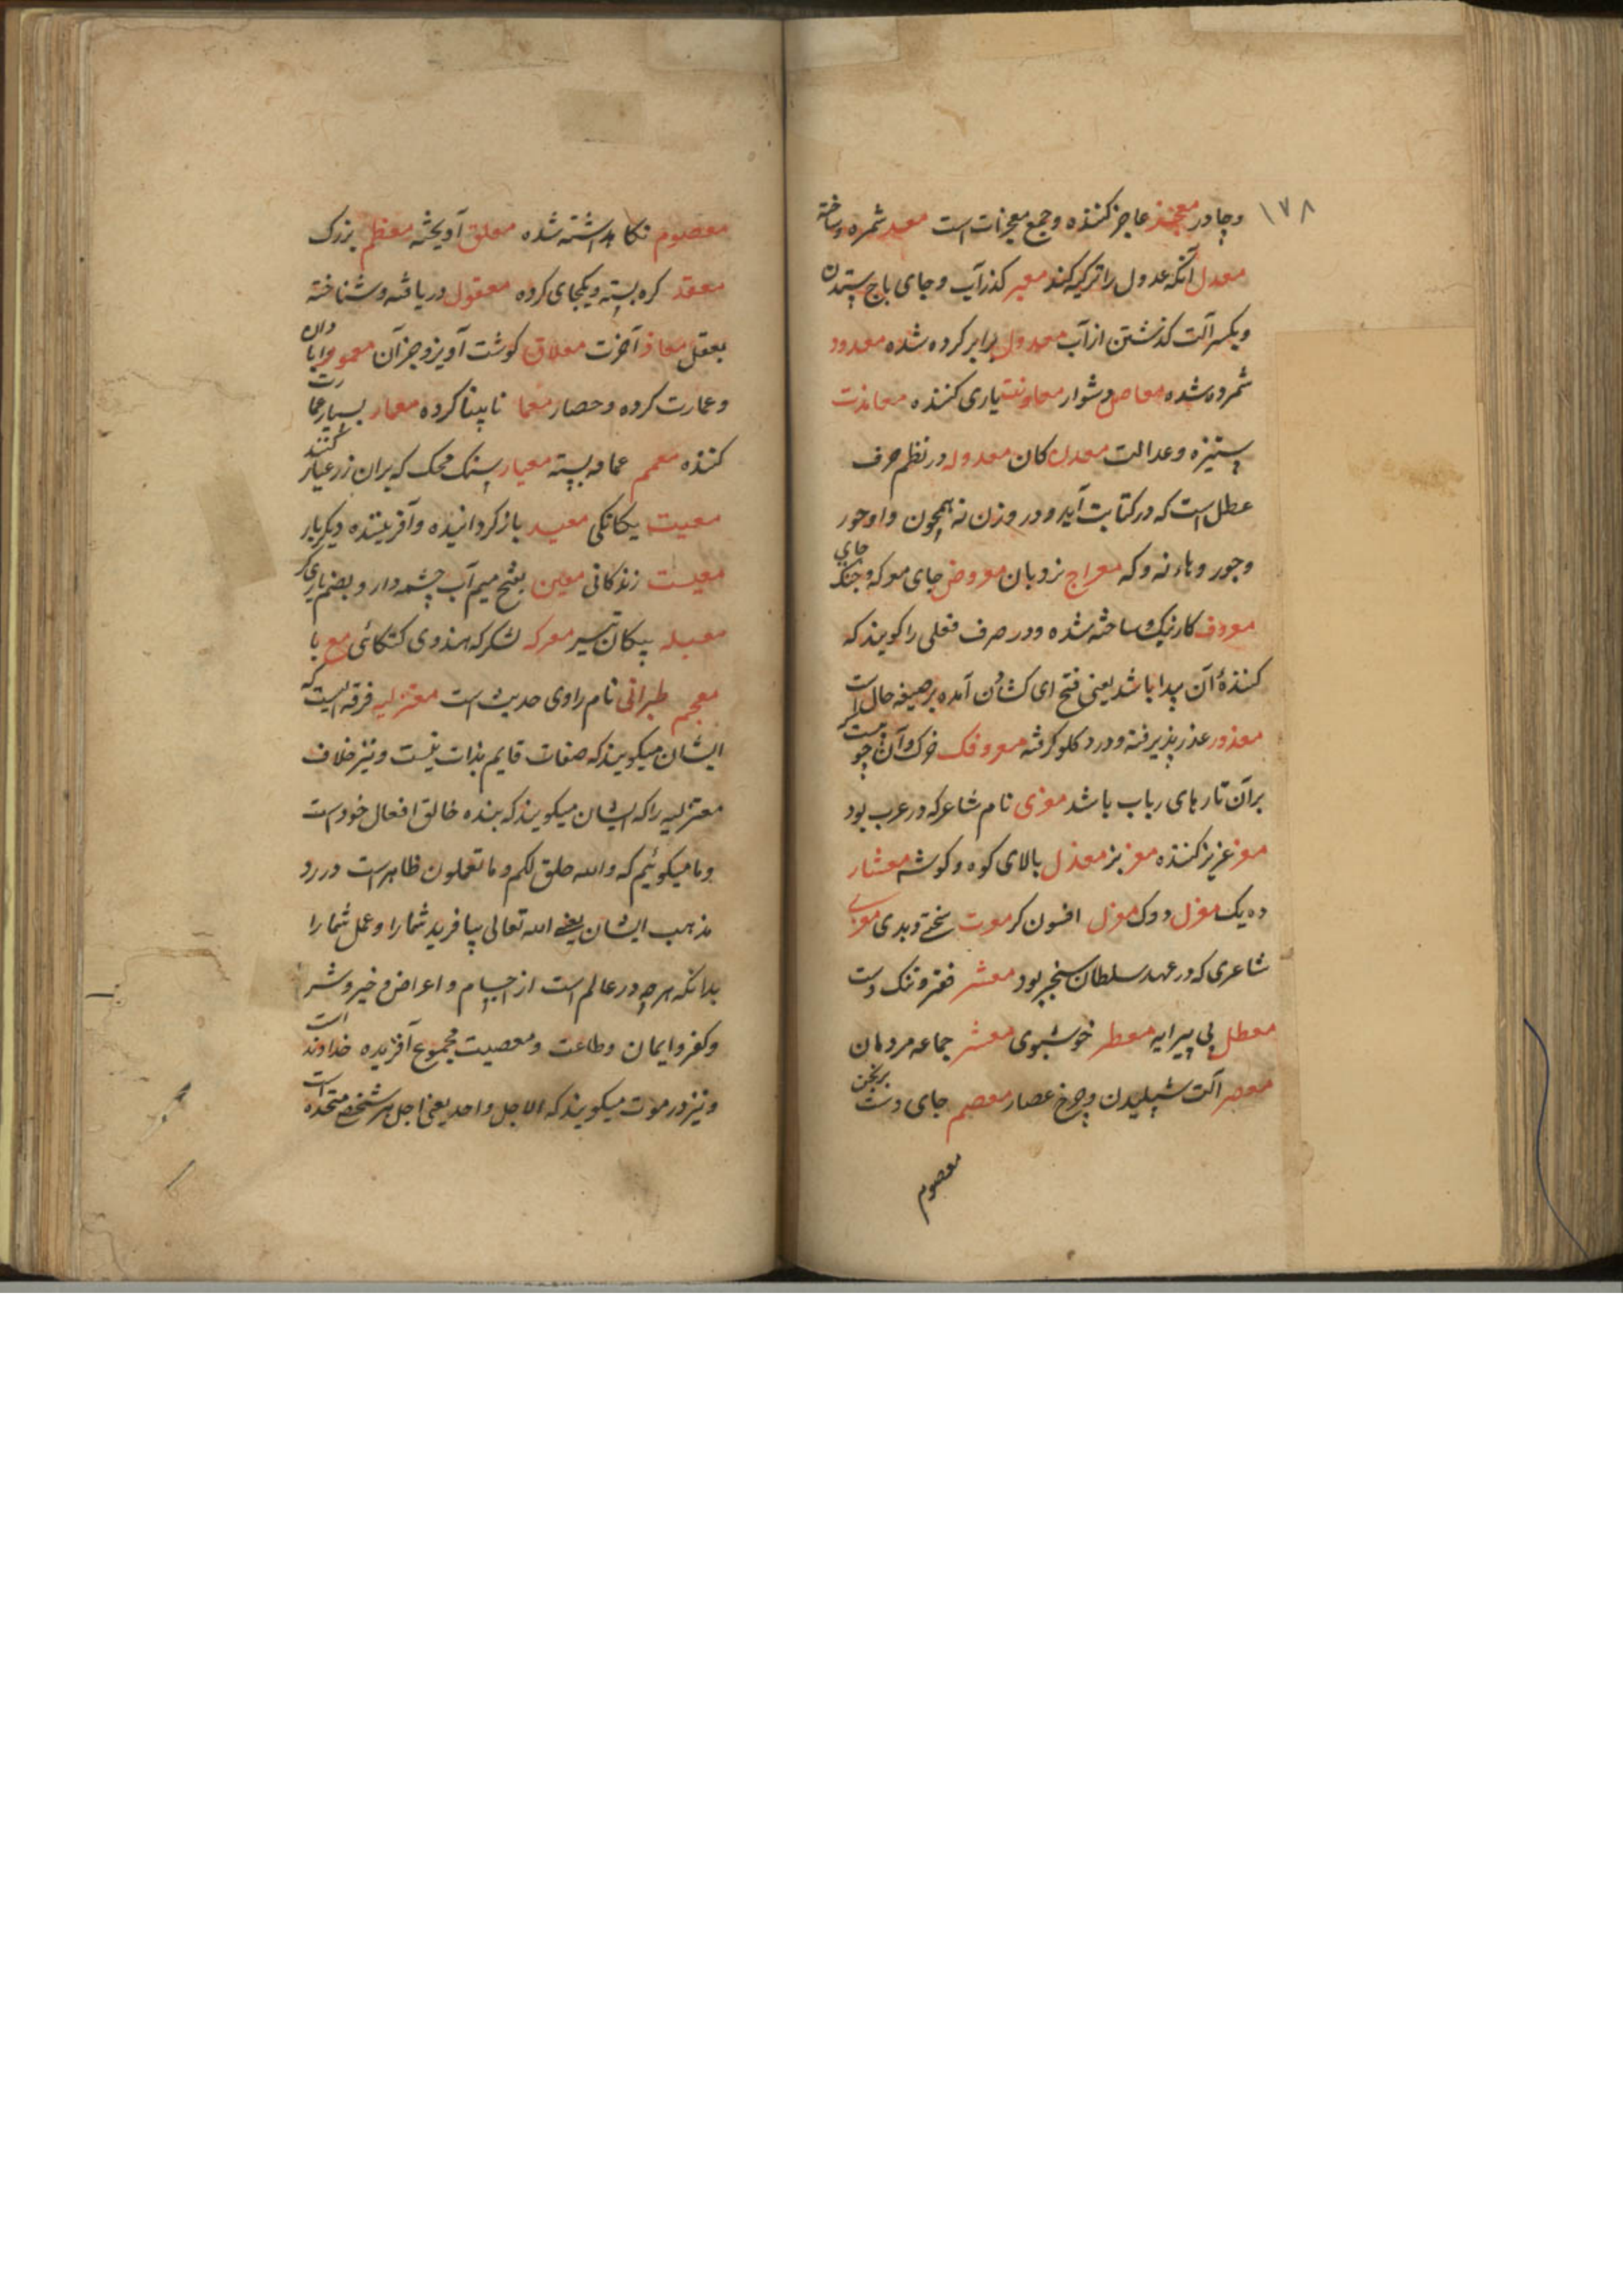 ۱۷۸
وچادر معجز عاجز کننده وجمع معجزات است معد شمره وساخته
معدل آنکه عدول را تزکیه کند معبر کذر آب وجای باج ستدن
وبکسر آلت کذشتن از آب معدول برابر کرده شده معدود
شمرده شده معاص دشوار معاونت یاری کننده معاندت
ستیزه وعدالت معدن کان معدوله در نظم حرف
عطل است که در کتابت آید ودر وزن نه همچون واو خور
وجور وهاء نه وکه معراج نردبان معروض جای معرکه وجای جنک
معروف کار نیک وساخته شده ودر صرف فعلی را کویند که
کنندهٔ آن پیدا باشد یعنی فتح ای کشادن آمده بر صیغه حال است
معذور عذر پذیرفته ودرد کلو کرفته معروفک خرک وآن چوبیست که
برآن تارهای رباب باشد معزی نام شاعر که در عرب بود
معز عزیز کننده معز بز معذل بالای کوه وکوشه معشار
ده یک مغزل دوک معزل افسون کر معرت سختی وبدی معزی
شاعری که در عهد سلطان سنجر بود معشر فقر وتنک دست
معطل بی پیرایه معطر خوشبوی معشر جماعه مردمان
معصر آلت شپلیدن وچرخ عصار معصم جای دست برنجن
معصوم
معصوم نکاهداشته شده معلق آویخته معظم بزرک
معقد کره بسته ویکجای کرده معقول دریافته وشناخته
بعقل معاد آخرت معلاق کوشت آویز وجز آن معمور آبادان
وعمارت کرده وحصار معما نابینا کرده معمار بسیار عمارت
کننده معمم عمامه بسته معیار سنک محک که بران زر عیار کنند
معیت یکانکی معید باز کردانیده وآفریننده دیکر بار
معیشت زندکانی معین بفتح میم آب چشمه دار وبضم یاری کر
معبله پیکان تیر معرکه لشکر که هندوی کتکائی مع با
معجم طبرانی نام راوی حدیث است معتزلیه فرقه ایست که
ایشان میکویند که صفات قایم بذات نیست ونیز خلاف
معتزلیه را که ایشان میکویند که بنده خالق افعال خود است
وما میکوئیم که والله خلق لکم وما تعملون ظاهر است در رد
مذهب ایشان یعنی الله تعالی بیافرید شما را وعمل شما را
بدانکه هرچه در عالم است از اجسام واعراض وخیر وشر
وکفر وایمان وطاعت ومعصیت مجموع آفریده خداوند است
ونیز در موت میکویند که الاجل واحد یعنی اجل هر شخصی متحده است